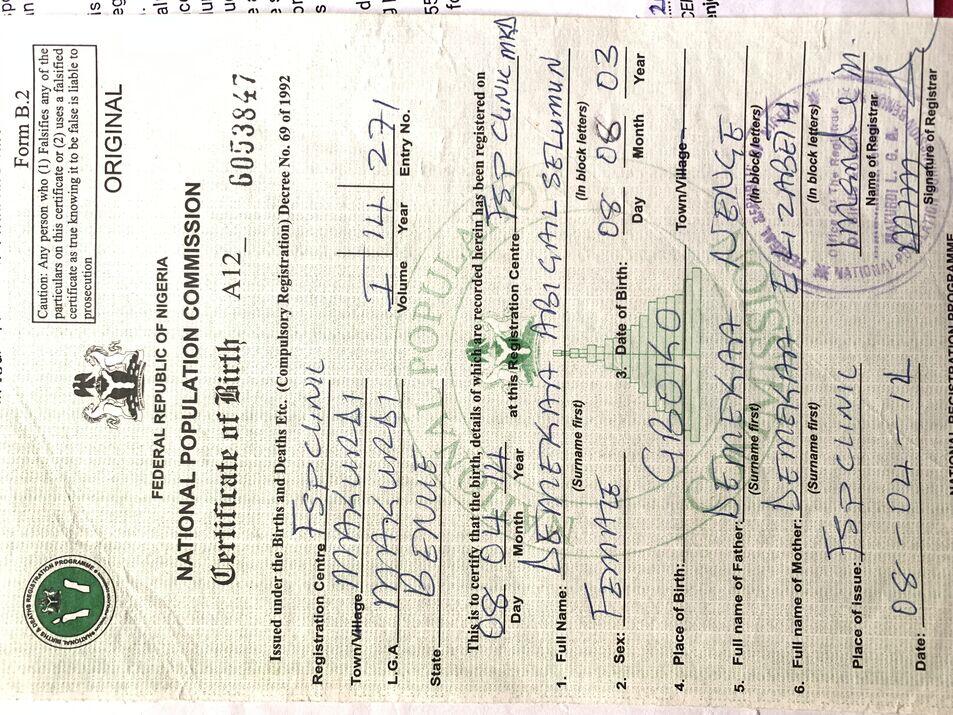 Form B.2
Caution: Any person who (1) Falsifies any of the
particulars on this certificate or (2) uses a falsified
certificate as true knowing it to be false is liable to
prosecution
ORIGINAL
NATIONAL BIRTHS & DEATHS REGISTRATION PROGRAMME
FEDERAL REPUBLIC OF NIGERIA
NATIONAL POPULATION COMMISSION
Certificate of Birth A12 6053847
Issued under the Births and Deaths Etc. (Compulsory Registration) Decree No. 69 of 1992
Registration Centre FSP CLINIC
Town/Village MAKURDI I 14 271
L.G.A. MAKURDI Volume Year Entry No.
State BENUE
This is to certify that the birth, details of which are recorded herein has been registered on
08 04 14 at this Registration Centre FSP CLINIC MKD
Day Month Year
1. Full Name: DEMEKAA ABIGAIL SELUMUN
(Surname first) (In block letters)
2. Sex: FEMALE 3. Date of Birth: 08 08 03
Day Month Year
4. Place of Birth: GBOKO Town/Village
5. Full name of Father: DEMEKAA NENGE
(Surname first) (In block letters)
6. Full name of Mother: DEMEKAA ELIZABETH
(Surname first) (In block letters)
Place of issue: FSP CLINIC M.
Name of Registrar
Date: 08-04-14
Signature of Registrar
NATIONAL REGISTRATION PROGRAMME